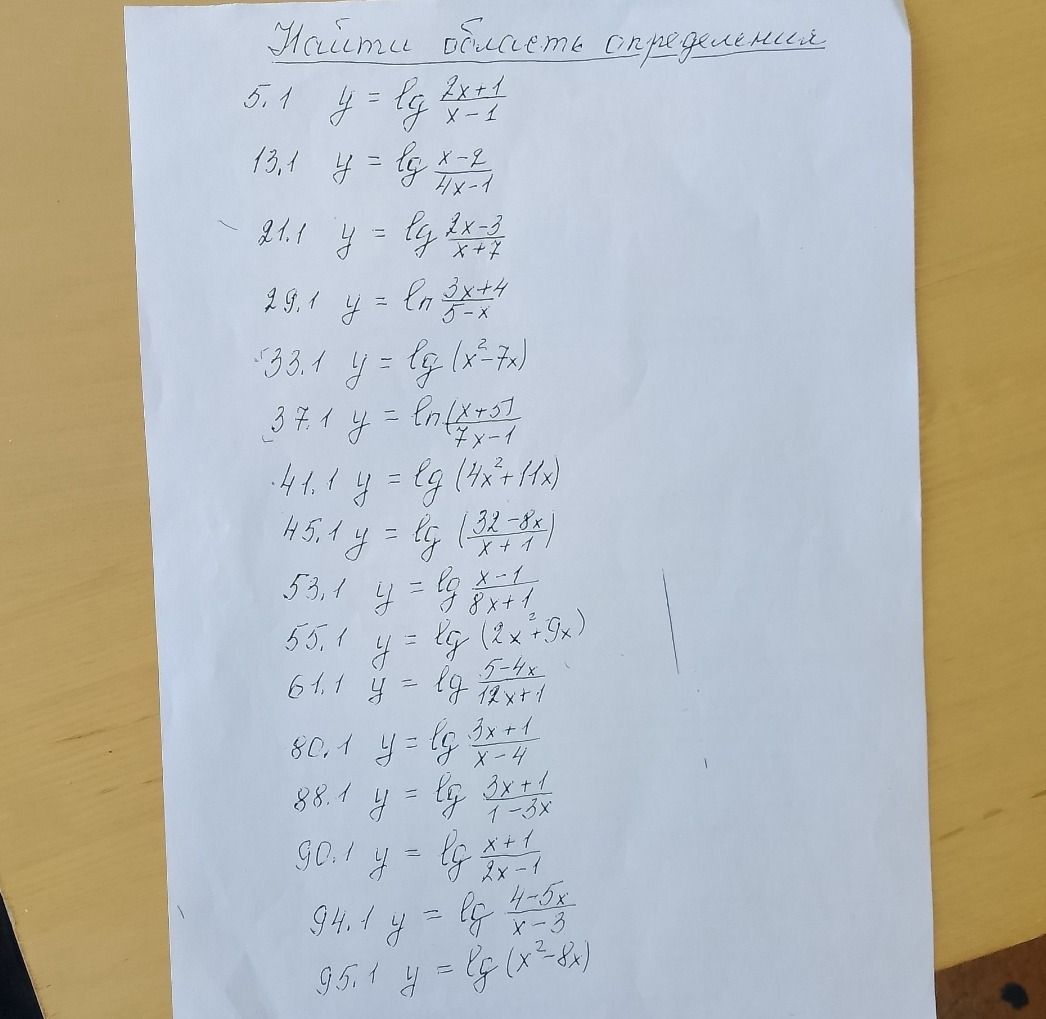 Найти область определения
5.1 y = lg (2x+1)/(x-1)
13.1 y = lg (x-2)/(4x-1)
21.1 y = lg (2x-3)/(x+7)
29.1 y = ln (3x+4)/(5-x)
33.1 y = lg (x²-7x)
37.1 y = ln (x+5)/(7x-1)
41.1 y = lg (4x²+11x)
45.1 y = lg ((32-8x)/(x+1))
53.1 y = lg (x-1)/(8x+1)
55.1 y = lg (2x²+9x)
61.1 y = lg (5-4x)/(12x+1)
80.1 y = lg (3x+1)/(x-4)
88.1 y = lg (3x+1)/(1-3x)
90.1 y = lg (x+1)/(2x-1)
94.1 y = lg (4-5x)/(x-3)
95.1 y = lg (x²-8x)